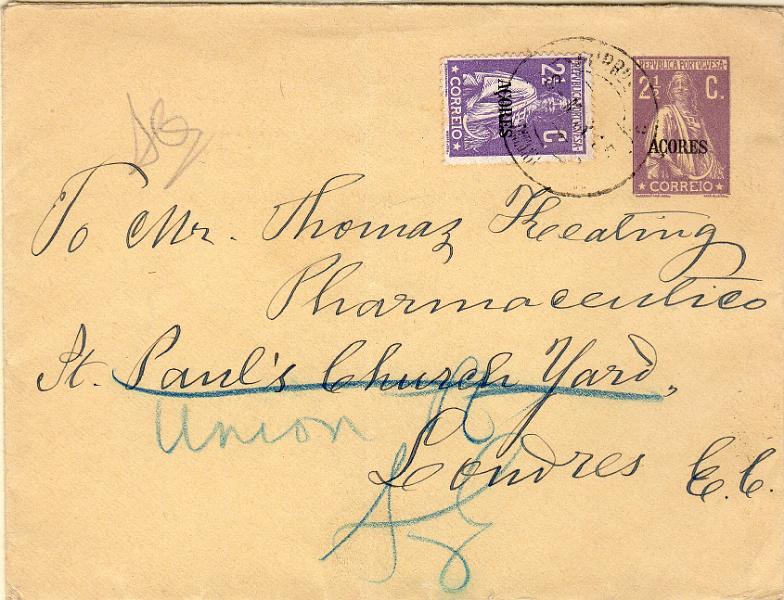 REPUBLICA PORTUGUESA
2½ C.
AÇORES
CORREIO
2½ C
REPUBLICA PORTUGUESA
AÇORES
CORREIO
To Mr. Thomaz Keating
Pharmaceutico
St. Paul's Church Yard,
Union
Londres E.C.